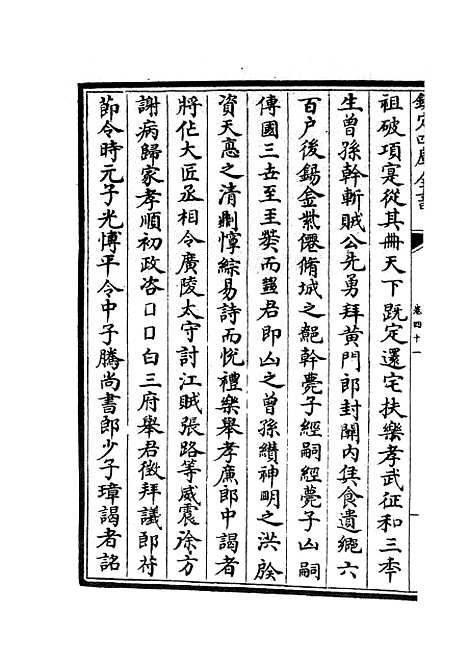 欽定四庫全書
卷四十一
祖破項寔從其冊天下既定還宅扶樂孝武征和三年
生曾孫幹斬賊公先勇拜黃門郎封關內侯食遺鄉六
百戶後錫金紫僊脩城之𨞬幹薨子經嗣經薨子凶嗣
傳國三世至王莽而絕君即凶之曾孫纘神明之洪族
資天悳之清㓝惇綜易詩而悅禮樂舉孝廉郎中謁者
將作大匠丞相令廣陵太守討江賊張路等威震徐方
謝病歸家孝順初政咨口口白三府舉君徵拜議郎苻
節令時元子光博平令中子騰尚書郎少子璋謁者詺